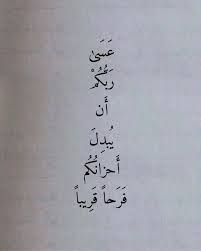 عَسَىٰ
رَبُّكُمْ
أَن
يُبدِلَ
أَحزانُكُم
فَرَحاً قَرِيباً